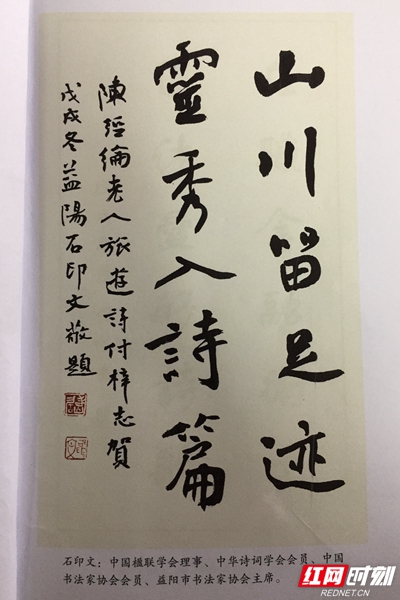 山川留足迹
靈秀入詩篇
陳經綸老人旅遊詩付梓志賀
戊戌冬益陽石印文敬題
石印文：中国楹联学会理事、中华诗词学会会员、中国
书法家协会会员、益阳市书法家协会主席。
红网时刻
REDNET.CN